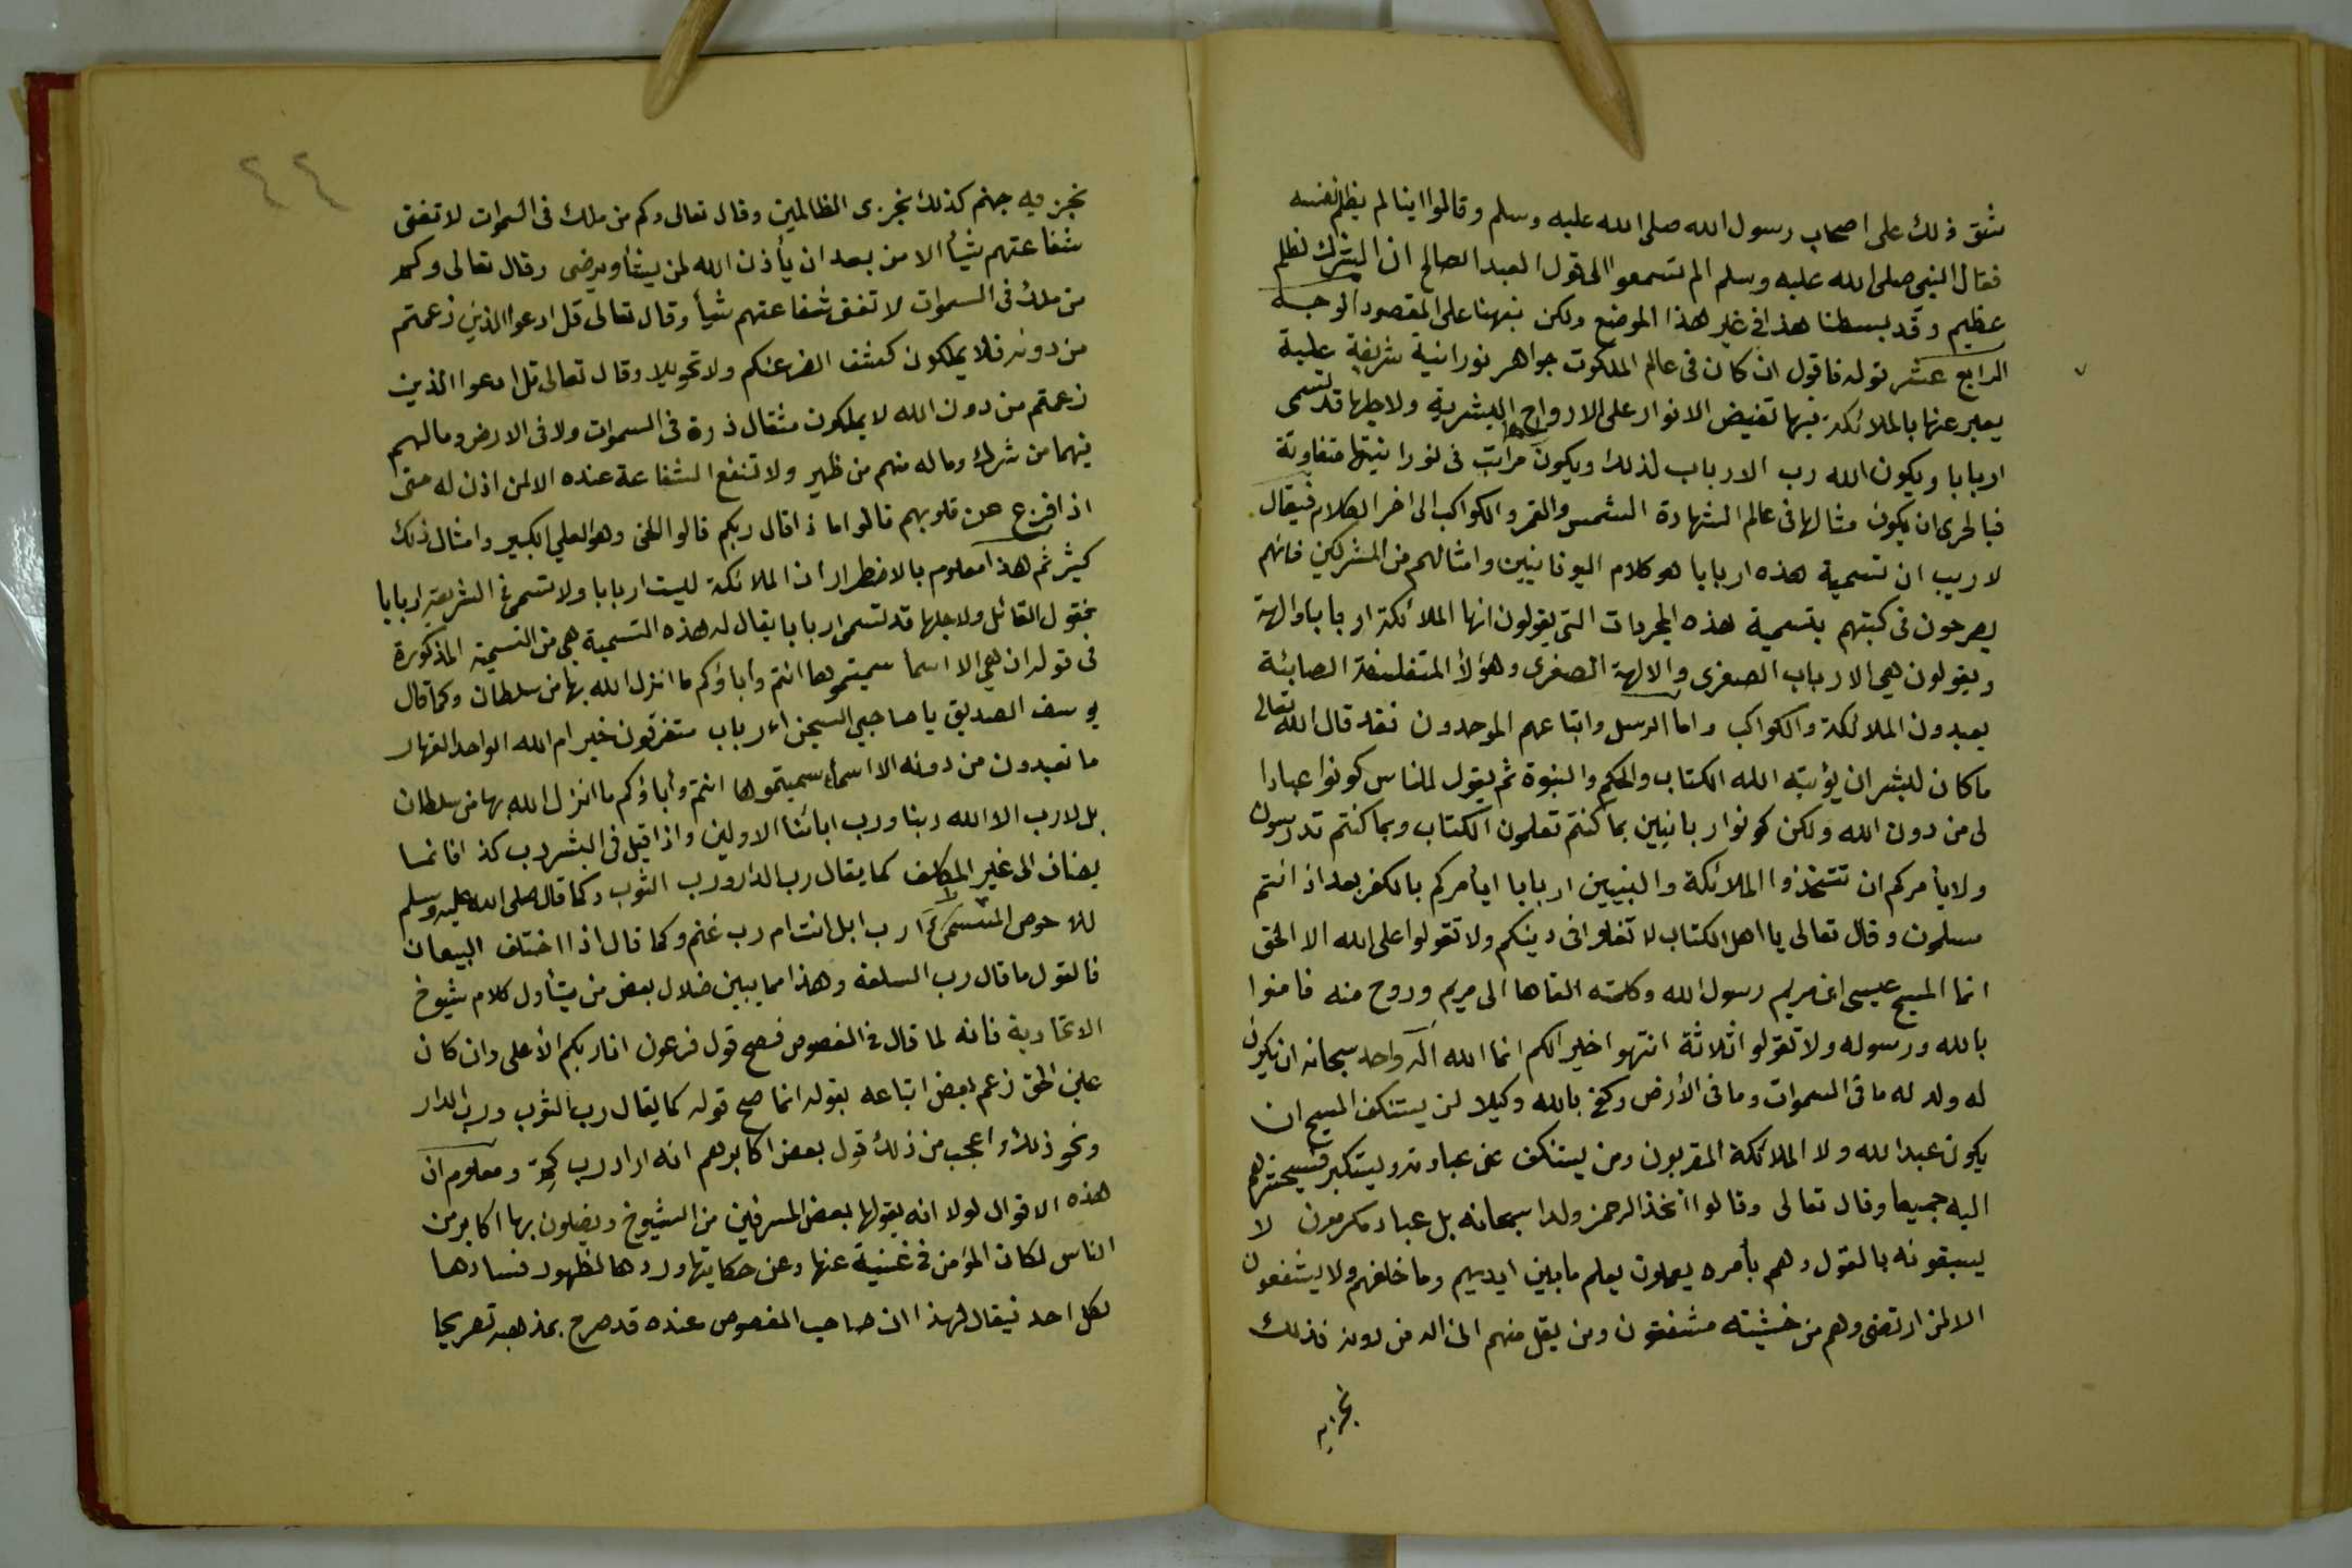 شق ذلك على اصحاب رسول الله صلى الله عليه وسلم وقالوا اينا لم يظلم نفسه
فقال النبي صلى الله عليه وسلم الم تسمعوا الى قول العبد الصالح ان الشرك لظلم
عظيم وقد بسطنا هذا في غير هذا الموضع ولكن نبهنا على المقصود الوجه
الرابع عشر قوله فاقول ان كان في عالم الملكوت جواهر نورانية شريفة علية
يعبر عنها بالملائكة فيها تفيض الانوار على الارواح البشرية ولاجلها قد تسمى
اربابا ويكون الله رب الارباب لذلك ويكون مراتب في نورانيتها متفاوتة
فبالحرى ان يكون مثالها في عالم الشهادة الشمس والقمر والكواكب الى اخر الكلام فيقال
لا ريب ان تسمية هذه اربابا هو كلام اليونانيين وامثالهم من المشركين فانهم
يصرحون في كتبهم بتسمية هذه المجردات التي يقولون انها الملائكة اربابا والهة
ويقولون هي الارباب الصغرى والالهة الصغرى وهؤلاء المتفلسفة الصابئة
يعبدون الملائكة والكواكب واما الرسل واتباعهم الموحدون فقد قال الله تعالى
ما كان لبشر ان يؤتيه الله الكتاب والحكم والنبوة ثم يقول للناس كونوا عبادا
لى من دون الله ولكن كونوا ربانيين بما كنتم تعلمون الكتاب وبما كنتم تدرسون
ولا يأمركم ان تتخذوا الملائكة والنبيين اربابا ايأمركم بالكفر بعد اذ انتم
مسلمون وقال تعالى يا اهل الكتاب لا تغلوا في دينكم ولا تقولوا على الله الا الحق
انما المسيح عيسى ابن مريم رسول الله وكلمته القاها الى مريم وروح منه فامنوا
بالله ورسوله ولا تقولوا ثلاثة انتهوا خيرا لكم انما الله اله واحد سبحانه ان يكون
له ولد له ما في السموات وما في الأرض وكفى بالله وكيلا لن يستنكف المسيح ان
يكون عبدا لله ولا الملائكة المقربون ومن يستنكف عن عبادته ويستكبر فسيحشرهم
اليه جميعا وقال تعالى وقالوا اتخذ الرحمن ولدا سبحانه بل عباد مكرمون لا
يسبقونه بالقول وهم بأمره يعملون يعلم ما بين ايديهم وما خلفهم ولا يشفعون
الا لمن ارتضى وهم من خشيته مشفقون ومن يقل منهم انى اله من دونه فذلك
نجزيه
٤٤
نجزيه جهنم كذلك نجزى الظالمين وقال تعالى وكم من ملك في السموات لا تغنى
شفاعتهم شيأ الا من بعد ان يأذن الله لمن يشأ ويرضى وقال تعالى وكم
من ملك في السموات لا تغنى شفاعتهم شيأ وقال تعالى قل ادعوا الذين زعمتم
من دونه فلا يملكون كشف الضر عنكم ولا تحويلا وقال تعالى قل ادعوا الذين
زعمتم من دون الله لا يملكون مثقال ذرة في السموات ولا في الارض وما لهم
فيهما من شرك وما له منهم من ظهير ولا تنفع الشفاعة عنده الا لمن اذن له حتى
اذا فزع عن قلوبهم قالوا ماذا قال ربكم قالوا الحق وهو العلي الكبير وامثال ذلك
كثير ثم هذا معلوم بالاضطرار ان الملائكة ليست اربابا ولا تسمى في الشريعة اربابا
فقول القائل ولاجلها قد تسمى اربابا يقال له هذه التسمية هي من التسمية المذكورة
في قوله ان هي الا اسما سميتموها انتم وأباؤكم ما انزل الله بها من سلطان وكما قال
يوسف الصديق يا صاحبي السجن اءرباب متفرقون خير ام الله الواحد القهار
ما تعبدون من دونه الا اسمأ سميتموها انتم وأباؤكم ما انزل الله بها من سلطان
بل لا رب الا الله ربنا ورب ابائنا الاولين واذا قيل في البشر رب كذا فانما
يضاف الى غير المكلف كما يقال رب الدار ورب الثوب وكما قال صلى الله عليه وسلم
للاحوص ارب ابل انت ام رب غنم وكما قال اذا اختلف البيعان
فالقول ما قال رب السلعة وهذا مما يبين ضلال بعض من يتأول كلام شيوخ
الاتحادية فانه لما قال في الفصوص فصح قول فرعون انا ربكم الأعلى وان كان
عين الحق زعم بعض اتباعه بقوله انما صح قوله كما يقال رب الثوب ورب الدار
ونحو ذلك واعجب من ذلك قول بعض اكابرهم انه اراد رب ومعلوم ان
هذه الاقوال لولا انه يقولها بعض المسرفين من الشيوخ ويضلون بها اكابر من
الناس لكان المؤمن في غنية عنها وعن حكايتها وردها لظهور فسادها
لكل احد فيقال لهذا ان صاحب الفصوص عنده قد صرح بمذهبه تصريحا